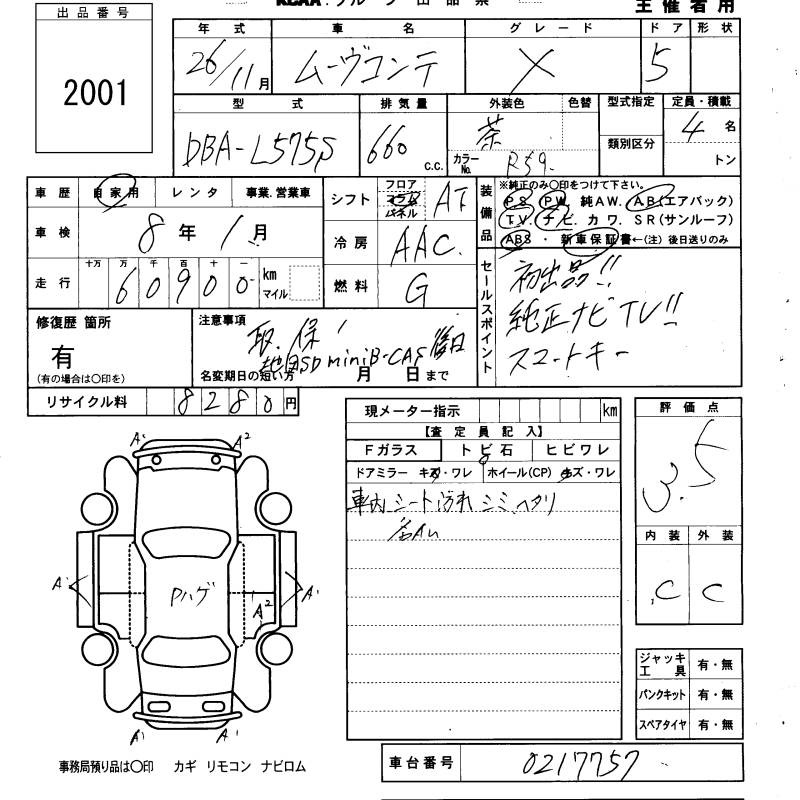 出品番号
2001
主催者用
年式 車名 グレード ドア 形状
26/11月 ムーヴコンテ X 5
型式 排気量 外装色 色替 型式指定 定員・積載
DBA-L575S 660 c.c. 茶 カラーNo. R59 類別区分 4名
トン
車歴 自家用 レンタ 事業.営業車
シフト フロア コラム パネル AT
車検 8年1月
冷房 AAC
走行 十万 万 千 百 十 一
60900 km マイル
燃料 G
装備品
※純正のみ〇印をつけて下さい。
PS PW 純AW. AB(エアバック)
TV. ナビ. カワ. SR(サンルーフ)
ABS ・ 新車保証書←(注) 後日送りのみ
セールスポイント
初出品!!
純正ナビTV!!
スマートキー
修復歴 箇所
有
(有の場合は〇印を)
注意事項
取.保
地図SD miniB-CAS 後日
名変期日の短い方 月 日まで
リサイクル料 8280円
現メーター指示 km
【査定員記入】
Fガラス トビ石 ヒビワレ
ドアミラー キズ・ワレ ホイール(CP) キズ・ワレ
車内シート汚れ シミ ヘタリ
評価点
3.5
内装 外装
C C
A¹ A²
A¹ Pハゲ A² A¹
A¹ A¹
事務局預り品は〇印 カギ リモコン ナビロム
ジャッキ工具 有・無
パンクキット 有・無
スペアタイヤ 有・無
車台番号 0217757